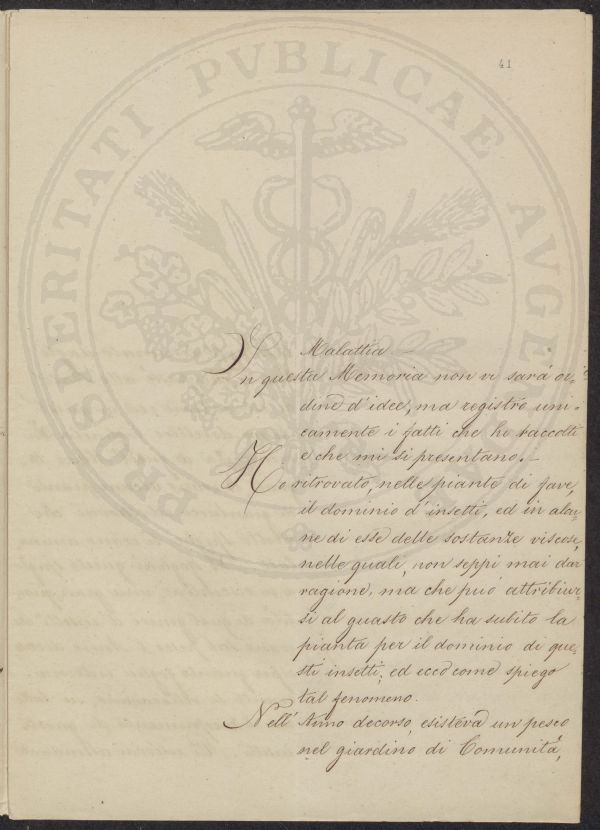 41
PROSPERITATI PVBLICAE AVGE
Malattia —
In questa Memoria non vi sará or-
dine d'idee, ma registro uni-
camente i fatti che ho raccolti
e che mi si presentano. —
Ho ritrovato, nelle piante di fave,
il dominio d'insetti, ed in alcu-
ne di esse delle sostanze viscose,
nelle quali, non seppi mai dar
ragione, ma che puó attribuir-
si al guasto che ha subito la
pianta per il dominio di que-
sti insetti, ed ecco come spiego
tal fenomeno.
Nell' Anno decorso, esisteva un pesco
nel giardino di Comunitá,